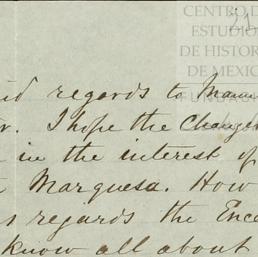 CENTRO DE
ESTUDIOS
DE HISTORIA
DE MEXICO
FUNDA
regards to
I hope the Changes
in the interest of
Marquesa. How
regards the Enc
know all about